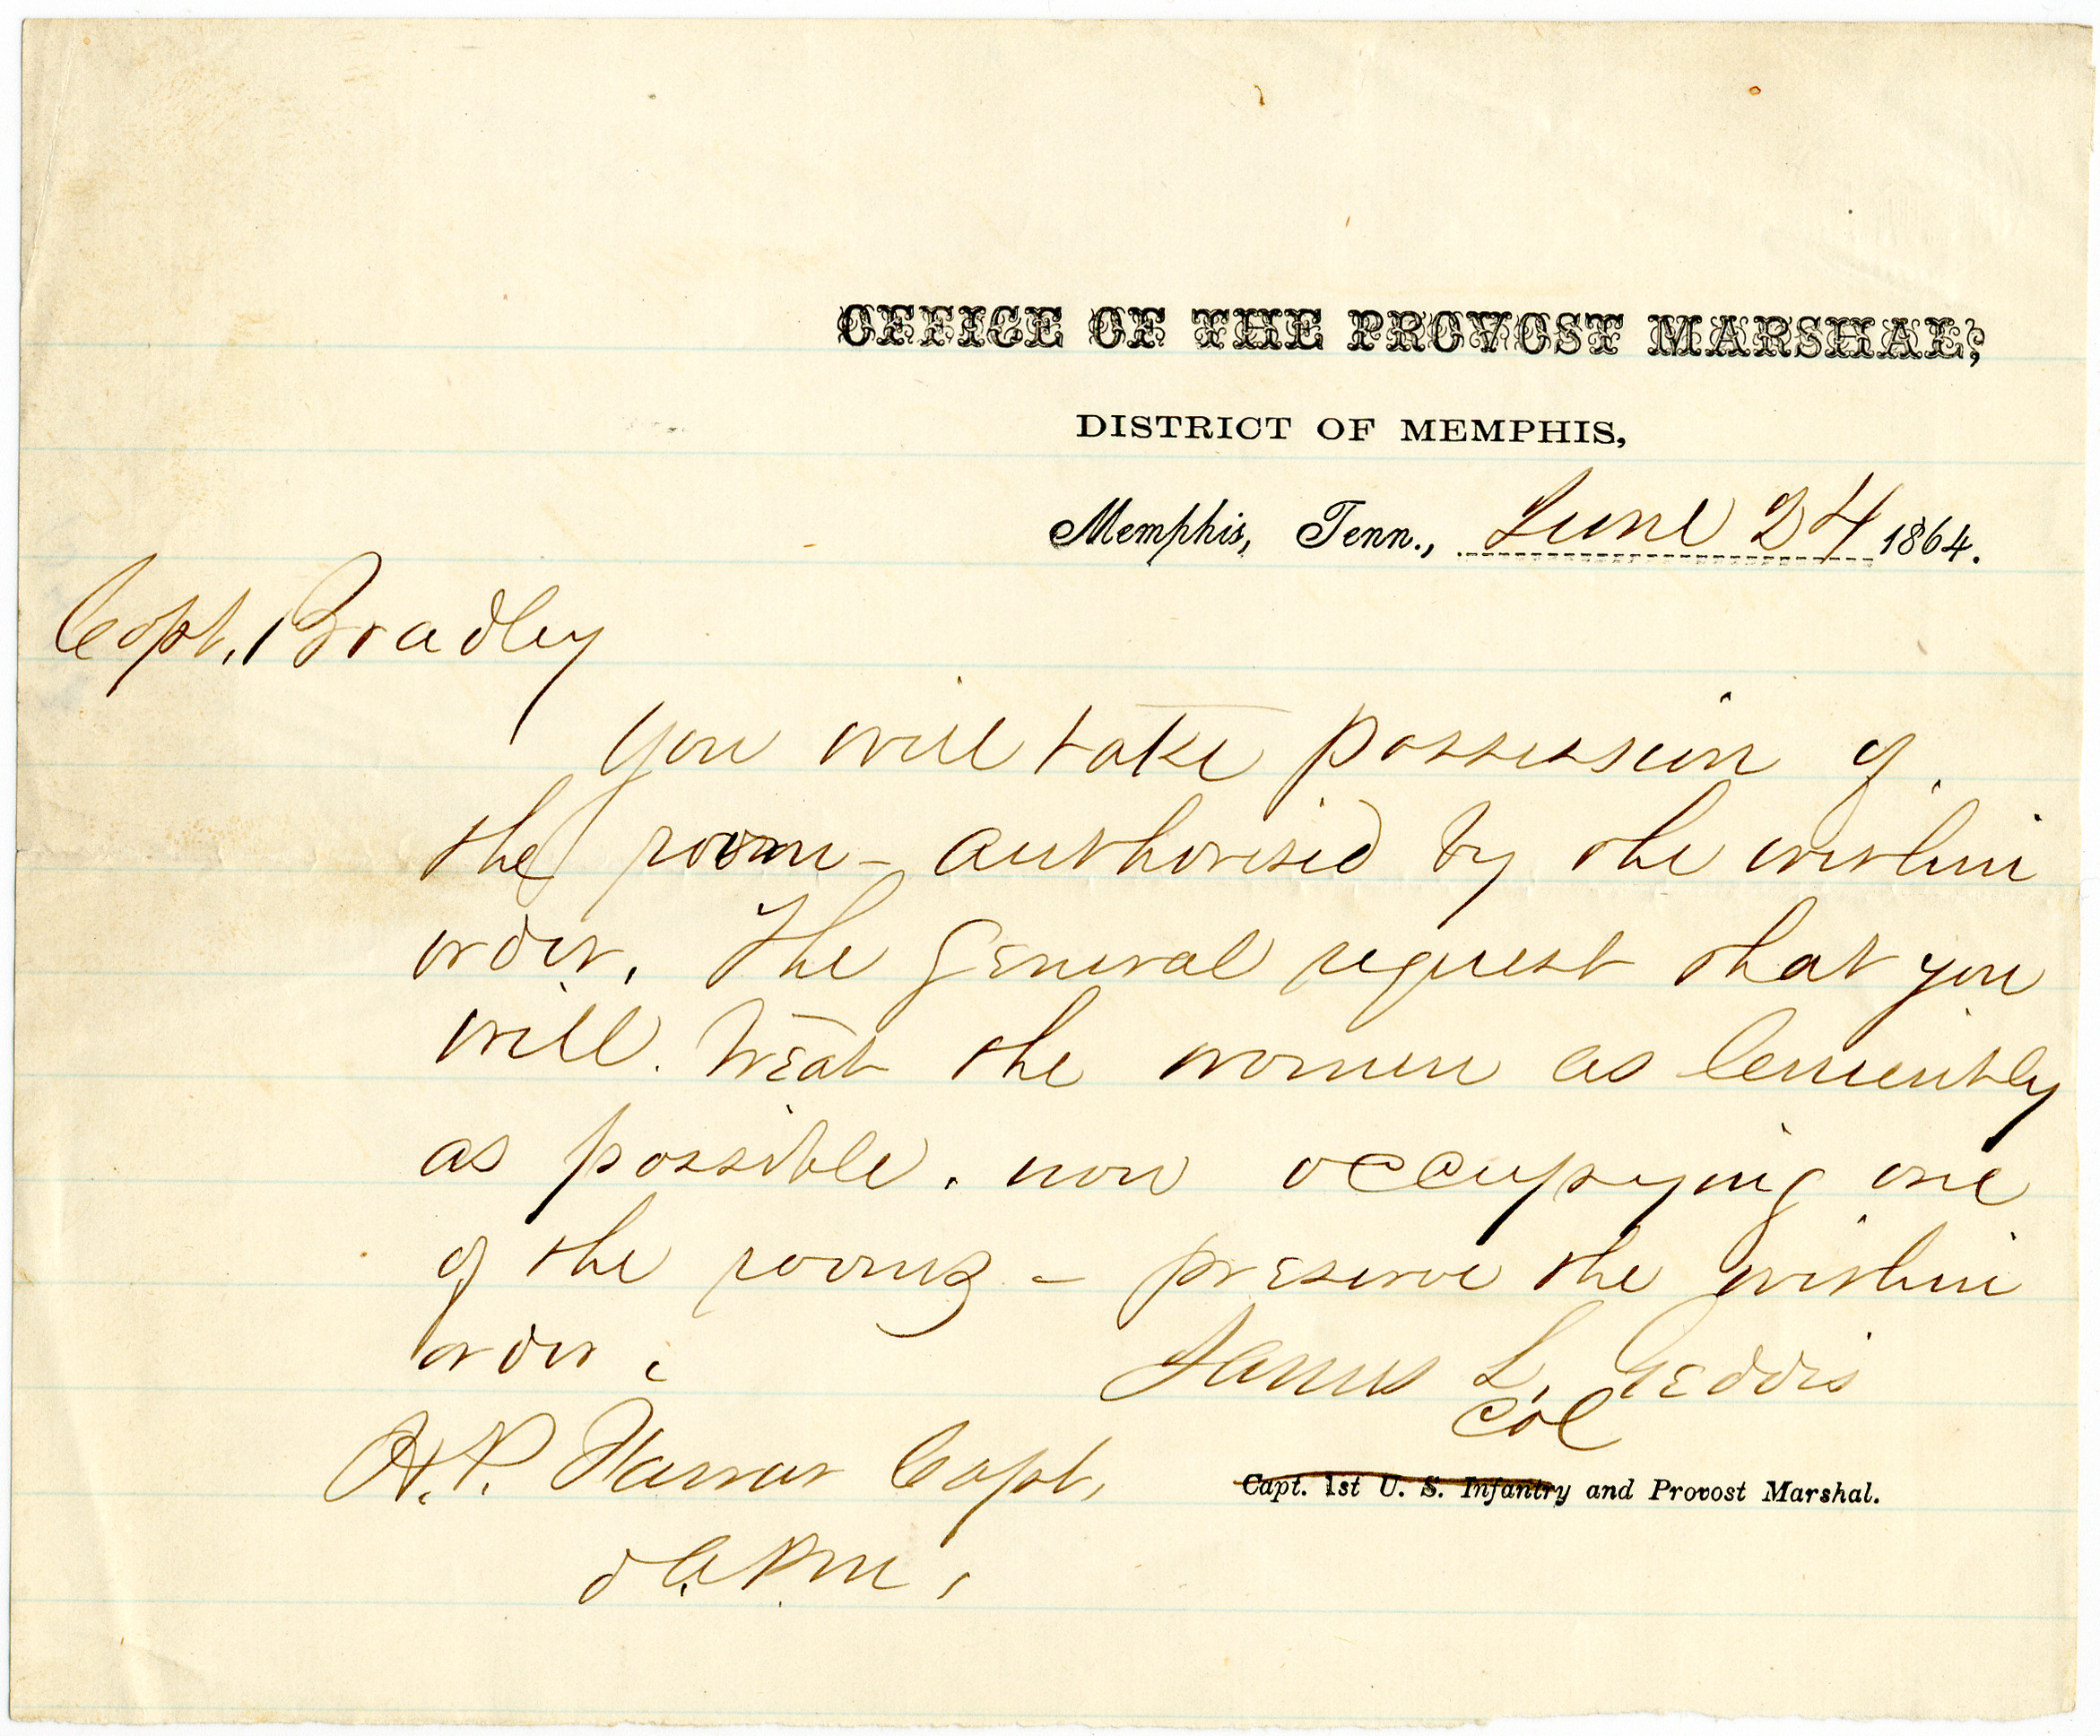 OFFICE OF THE PROVOST MARSHAL,
DISTRICT OF MEMPHIS,
Memphis, Tenn., June 24 1864.
Capt. Bradley
You will take possession of
the room – authorised by the within
order. The General request that you
will. treat the women as leniently
as possible. now occupying one
of the rooms – preserve the within
order.
James L. Geddis
Col
H. P. Capt,
Capt. 1st U. S. Infantry and Provost Marshal.